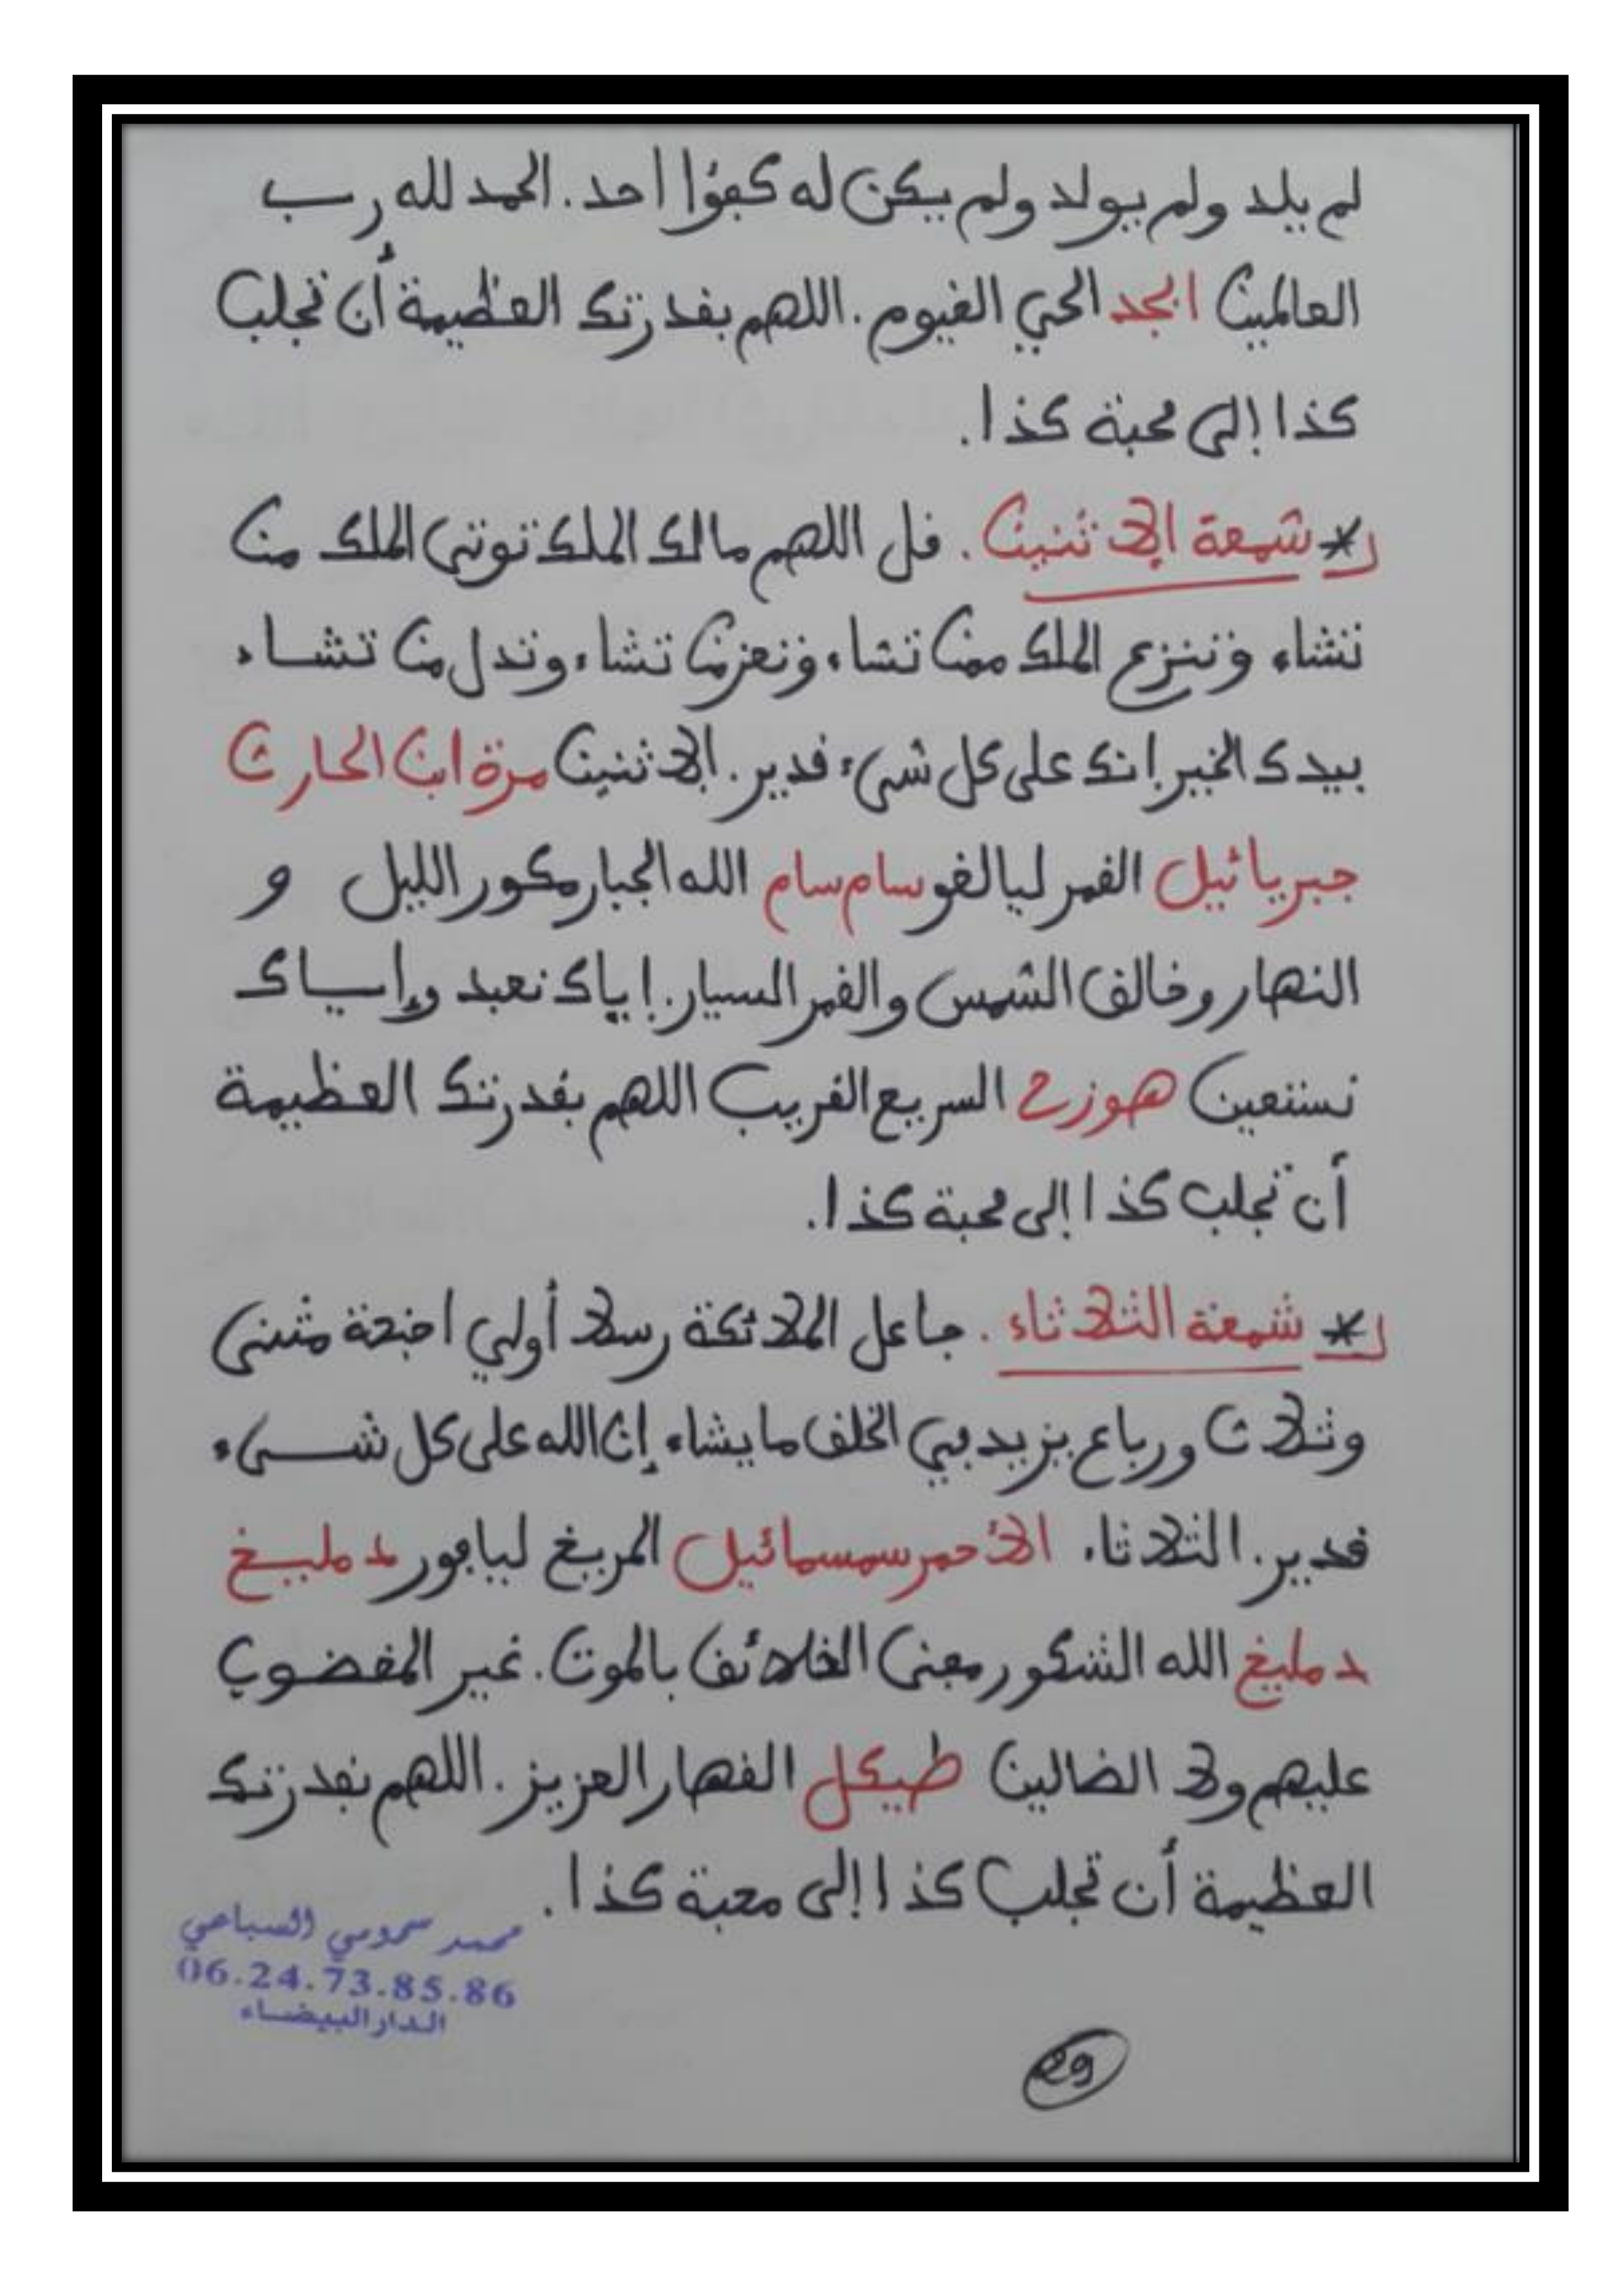 لم يلد ولم يولد ولم يكن له كفؤا أحد. الحمد لله رب
العالمين ابجد الحي القيوم. اللهم بقدرتك العظيمة أن تجلب
كذا إلى محبة كذا.
* شمعة الإثنين. قل اللهم مالك الملك توتي الملك من
تشاء وتنزع الملك ممن تشاء وتعز من تشاء وتدل من تشاء
بيدك الخير إنك على كل شيء قدير. الإثنين مرة ابن الحارث
جبريائيل القمر ليالغو سام سام الله الجبار مكور الليل و
النهار وخالق الشمس والقمر السيار. إياك نعبد وإياك
نستعين هوزح السريع القريب اللهم بقدرتك العظيمة
أن تجلب كذا إلى محبة كذا.
* شمعة الثلاثاء. جاعل الملائكة رسلا أولي اجنحة مثنى
وثلاث ورباع يزيد في الخلق ما يشاء إن الله على كل شيء
قدير. الثلاثاء الأحمر سمسمائيل المريخ ليافور دمليخ
دمليخ الله الشكور مفني الخلائق بالموت. غير المغضوب
عليهم ولا الضالين طيكل القهار العزيز. اللهم بقدرتك
العظيمة أن تجلب كذا إلى محبة كذا.
محمد سحومي السباعي
06.24.73.85.86
الدار البيضاء
29